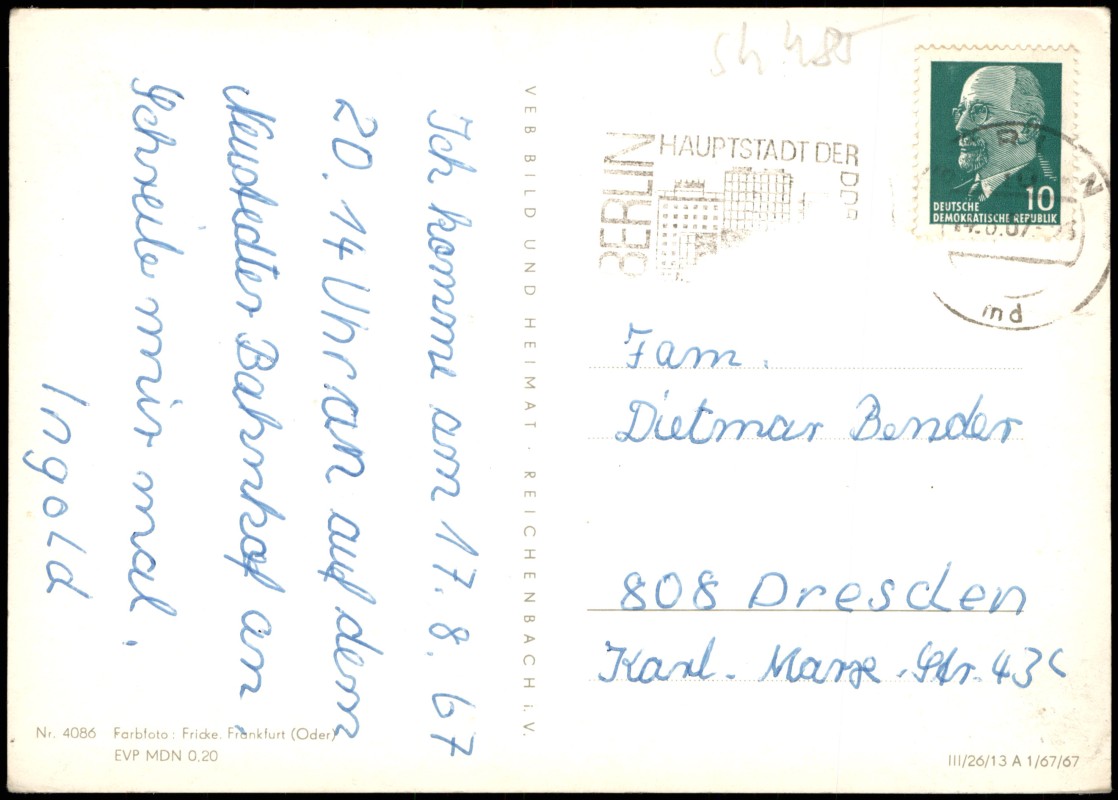 Ich komme am 17.8.67
20.14 Uhr an auf dem
Neustädter Bahnhof an.
Schreibe mir mal.
Ingold
VEB BILD UND HEIMAT · REICHENBACH i. V.
Nr. 4086 Farbfoto: Fricke, Frankfurt (Oder)
EVP MDN 0,20
BERLIN
HAUPTSTADT DER
DDR
10
DEUTSCHE
DEMOKRATISCHE REPUBLIK
md
Fam.
Dietmar Bender
808 Dresden
Karl-Marx-Str. 43c
III/26/13 A 1/67/67